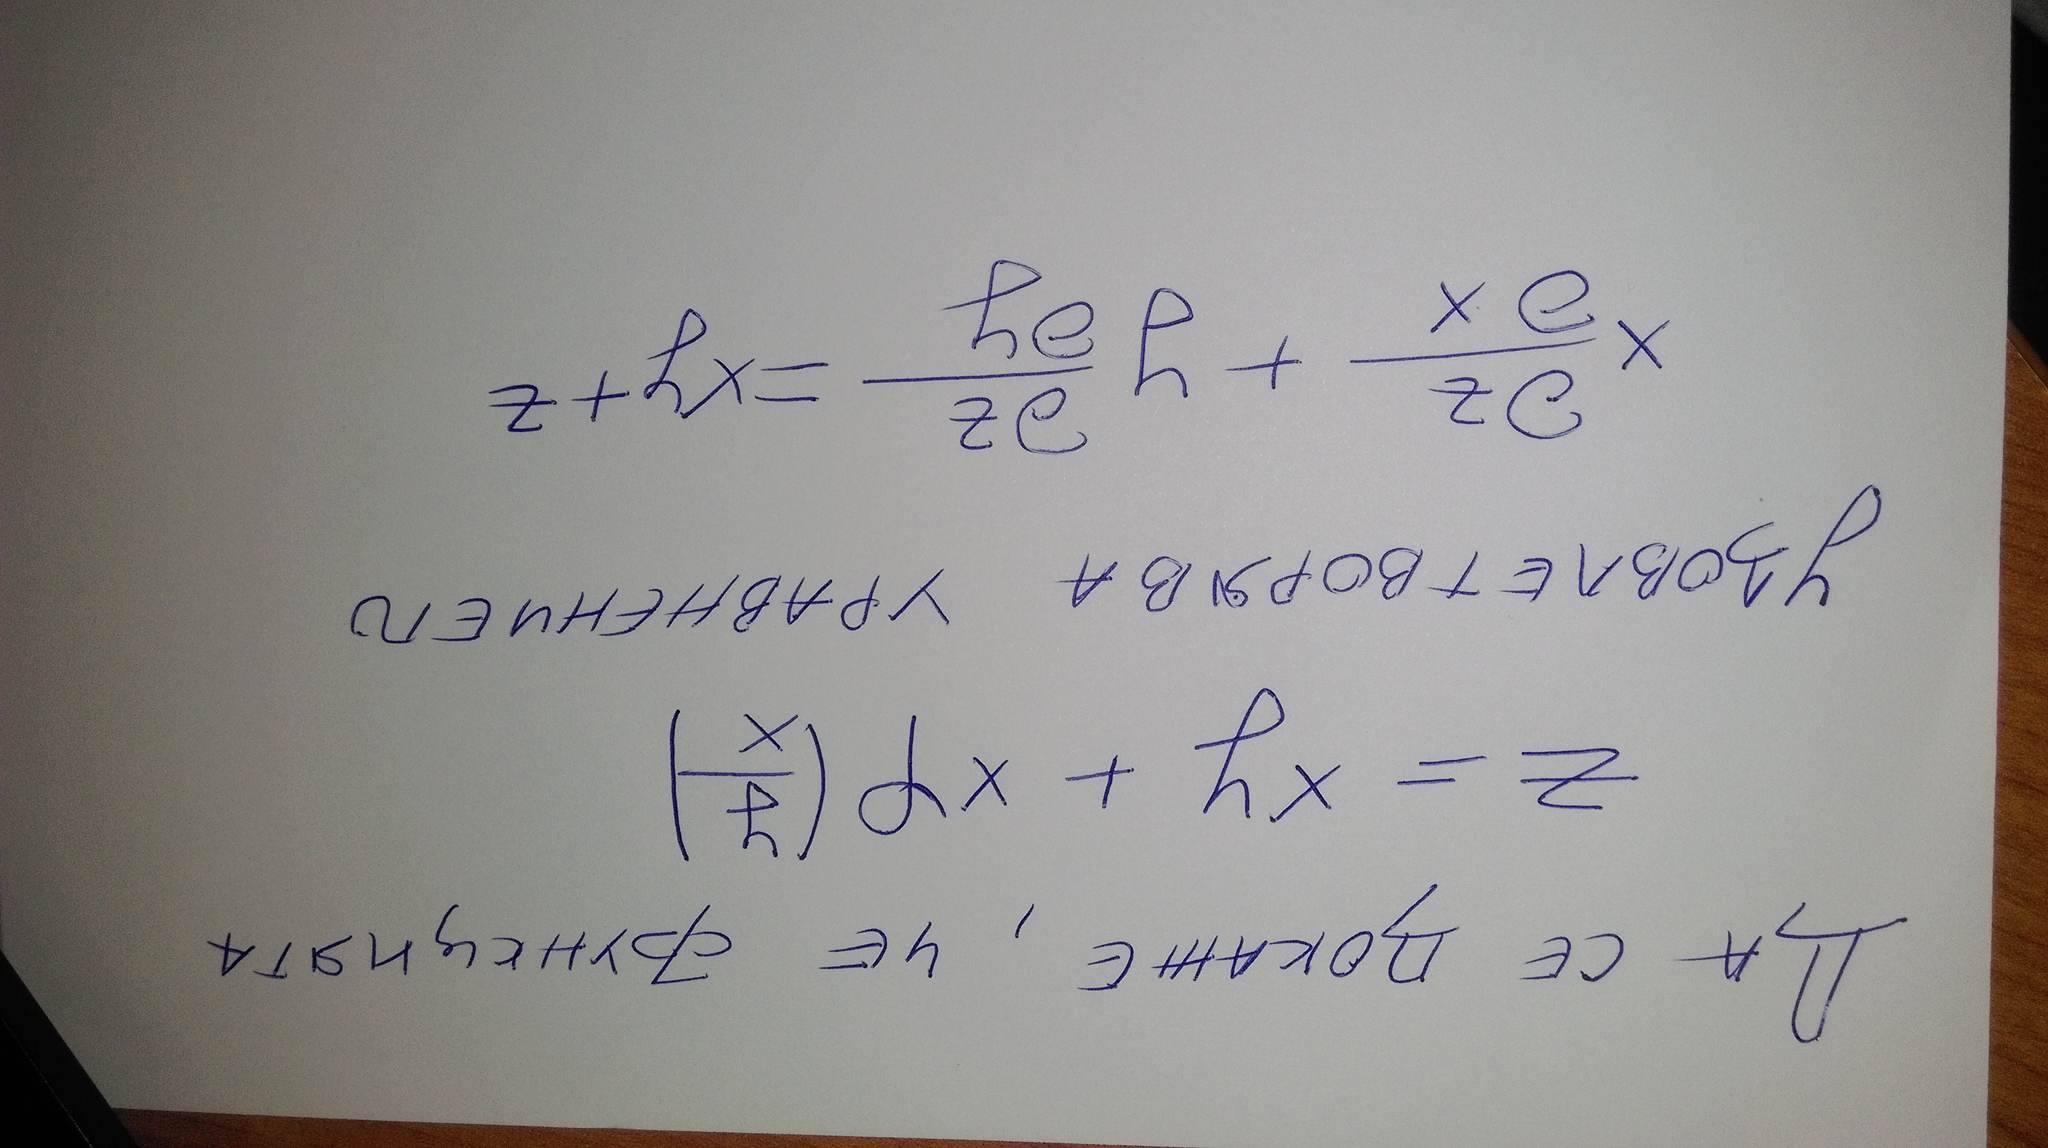 Да се докаже, че функцията
z = xy + xφ(y/x)
удовлетворява уравнението
x ∂z/∂x + y ∂z/∂y = xy + z